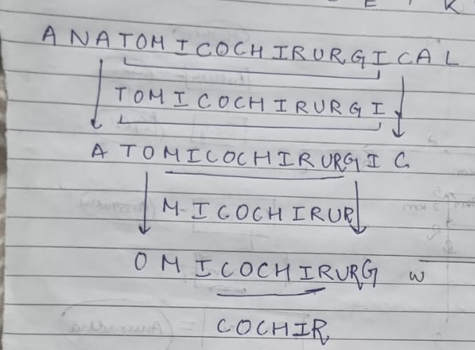 E , K
ANATOMICOCHIRURGICAL
TOMICOCHIRURGI
ATOMICOCHIRURGIC
MICOCHIRUR
OMICOCHIRURG w
COCHIR